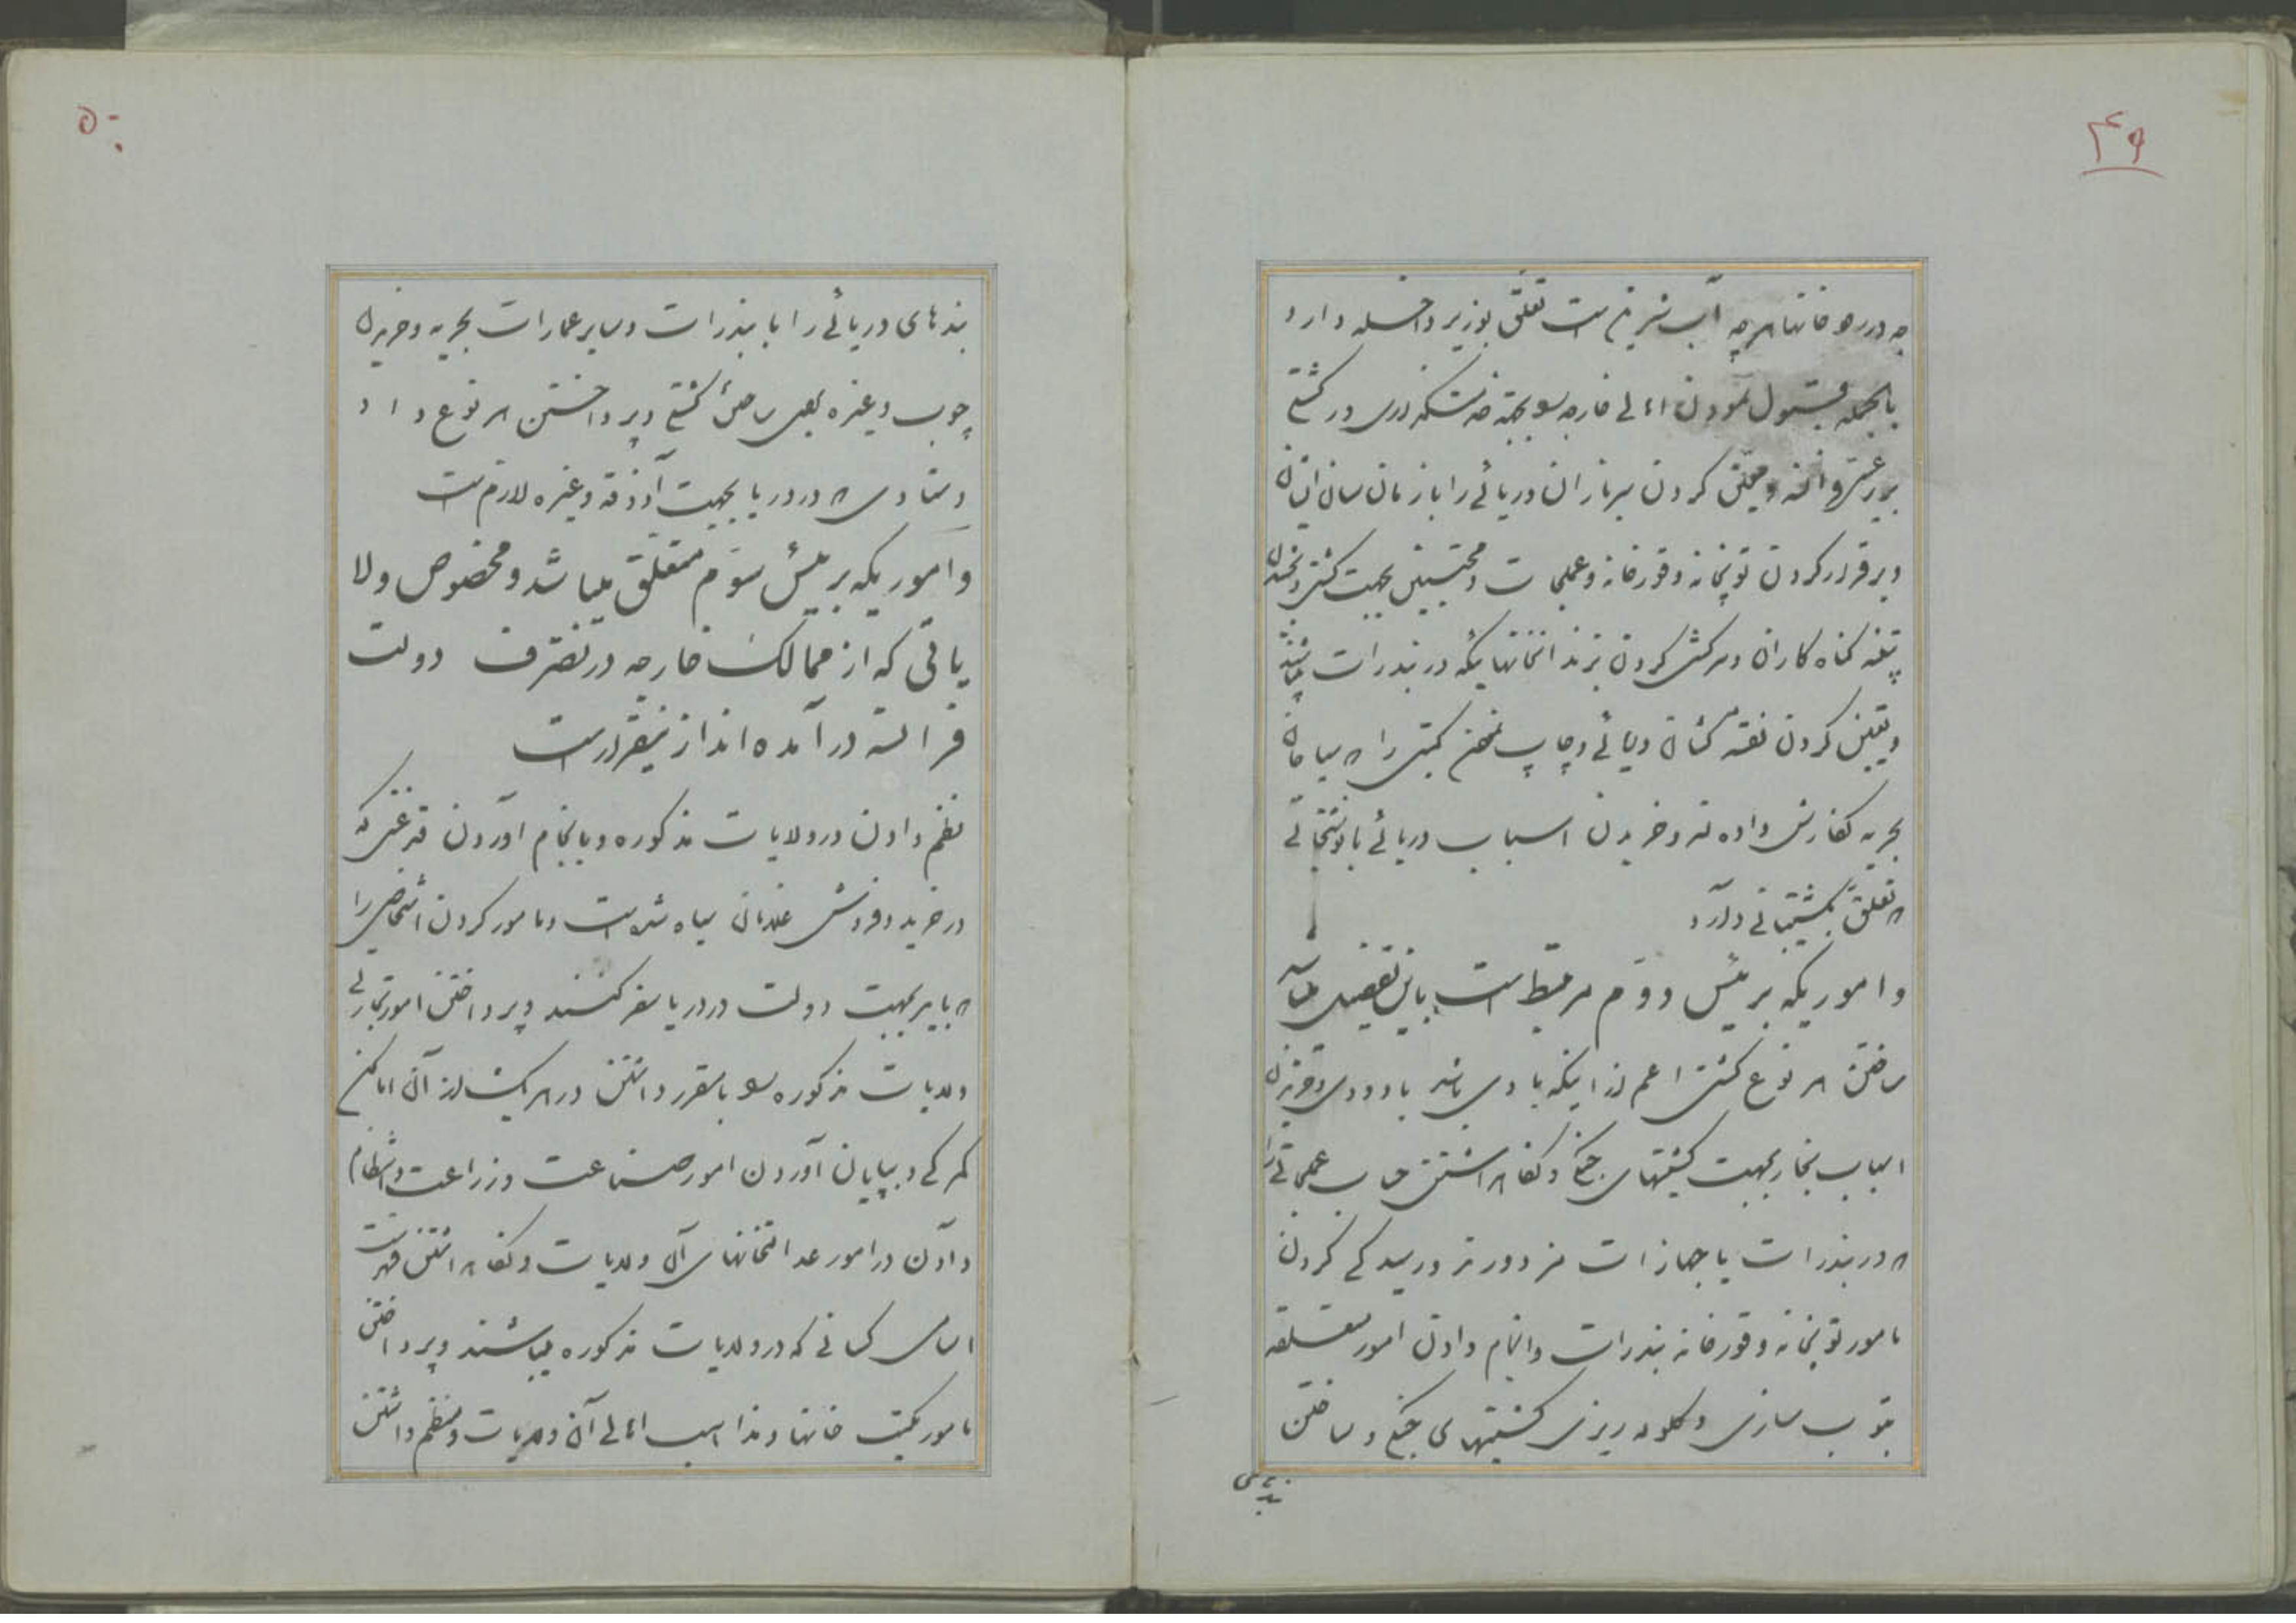 ۴۹
چه در رودخانها هرچه آب شیرین است تعلق بوزیر داخله دارد
بالجمله قبول نمودن اهالی خارجه بجهته خدمتکذاری در کشتی
معین کردن سربازان دریائی را با زمان سان ایشان
و برقرار کردن توپخانه و قورخانه و عملجات و محبسین بجهت کشتی و بخشیدن
گناه کاران و سرکشی کردن بزندانخانهائیکه در بندرات میباشند
و تعیین کردن نقشه کشان دریائی و چاپ کتبی را که سیاحان
بحریه نگارش داده‌اند و خریدن اسباب دریائی
که تعلق بکشتیبانی دارد
و اموریکه برئیس دوّم مرتبط است باین تفصیل میباشد
ساختن هر نوع کشتی اعم از اینکه بادی باشد یا دودی و خریدن
اسباب بخار بجهت کشتیهای جنگی و نگاهداشتن حساب عملجاتی را
که در بندرات با جهازات مزدورند و رسیدگی کردن
بامور توپخانه و قورخانه بندرات و انجام دادن امور متعلقه
بتوپ سازی و گلوله ریزی کشتیهای جنگی و ساختن
بندهای
۵۰
بندهای دریائی را با بندرات و سایر عمارات بحریه و خریدن
چوب و غیره بجهت ساختن کشتی و پرداختن هر نوع داد
و ستادی که در دریا بجهت آذوقه و غیره لازم است
و اموریکه برئیس سوّم متعلق میباشد و مخصوص ولا
یاتی که از ممالک خارجه در تصرف دولت
فرانسه درآمده‌اند ازینقرار است
نظم دادن در ولایات مذکوره و بانجام آوردن قدغنی که
در خرید و فروش غلامان سیاه شده است و مامور کردن اشخاصی را
که باید بجهت دولت در دریا سفر کنند و پرداختن امور تجارتی
ولایات مذکوره و برقرار داشتن در هریک از آن اماکن
گمرکی و بپایان آوردن امور صناعت و زراعت و انتظام
دادن در امور عدالتخانهای آن ولایات و نگاهداشتن فهرست
اسامی کسانی که در ولایات مذکوره میباشند و پرداختن
بامور مکتب خانها و مذاهب اهالی آن ولایات و منظم داشتن